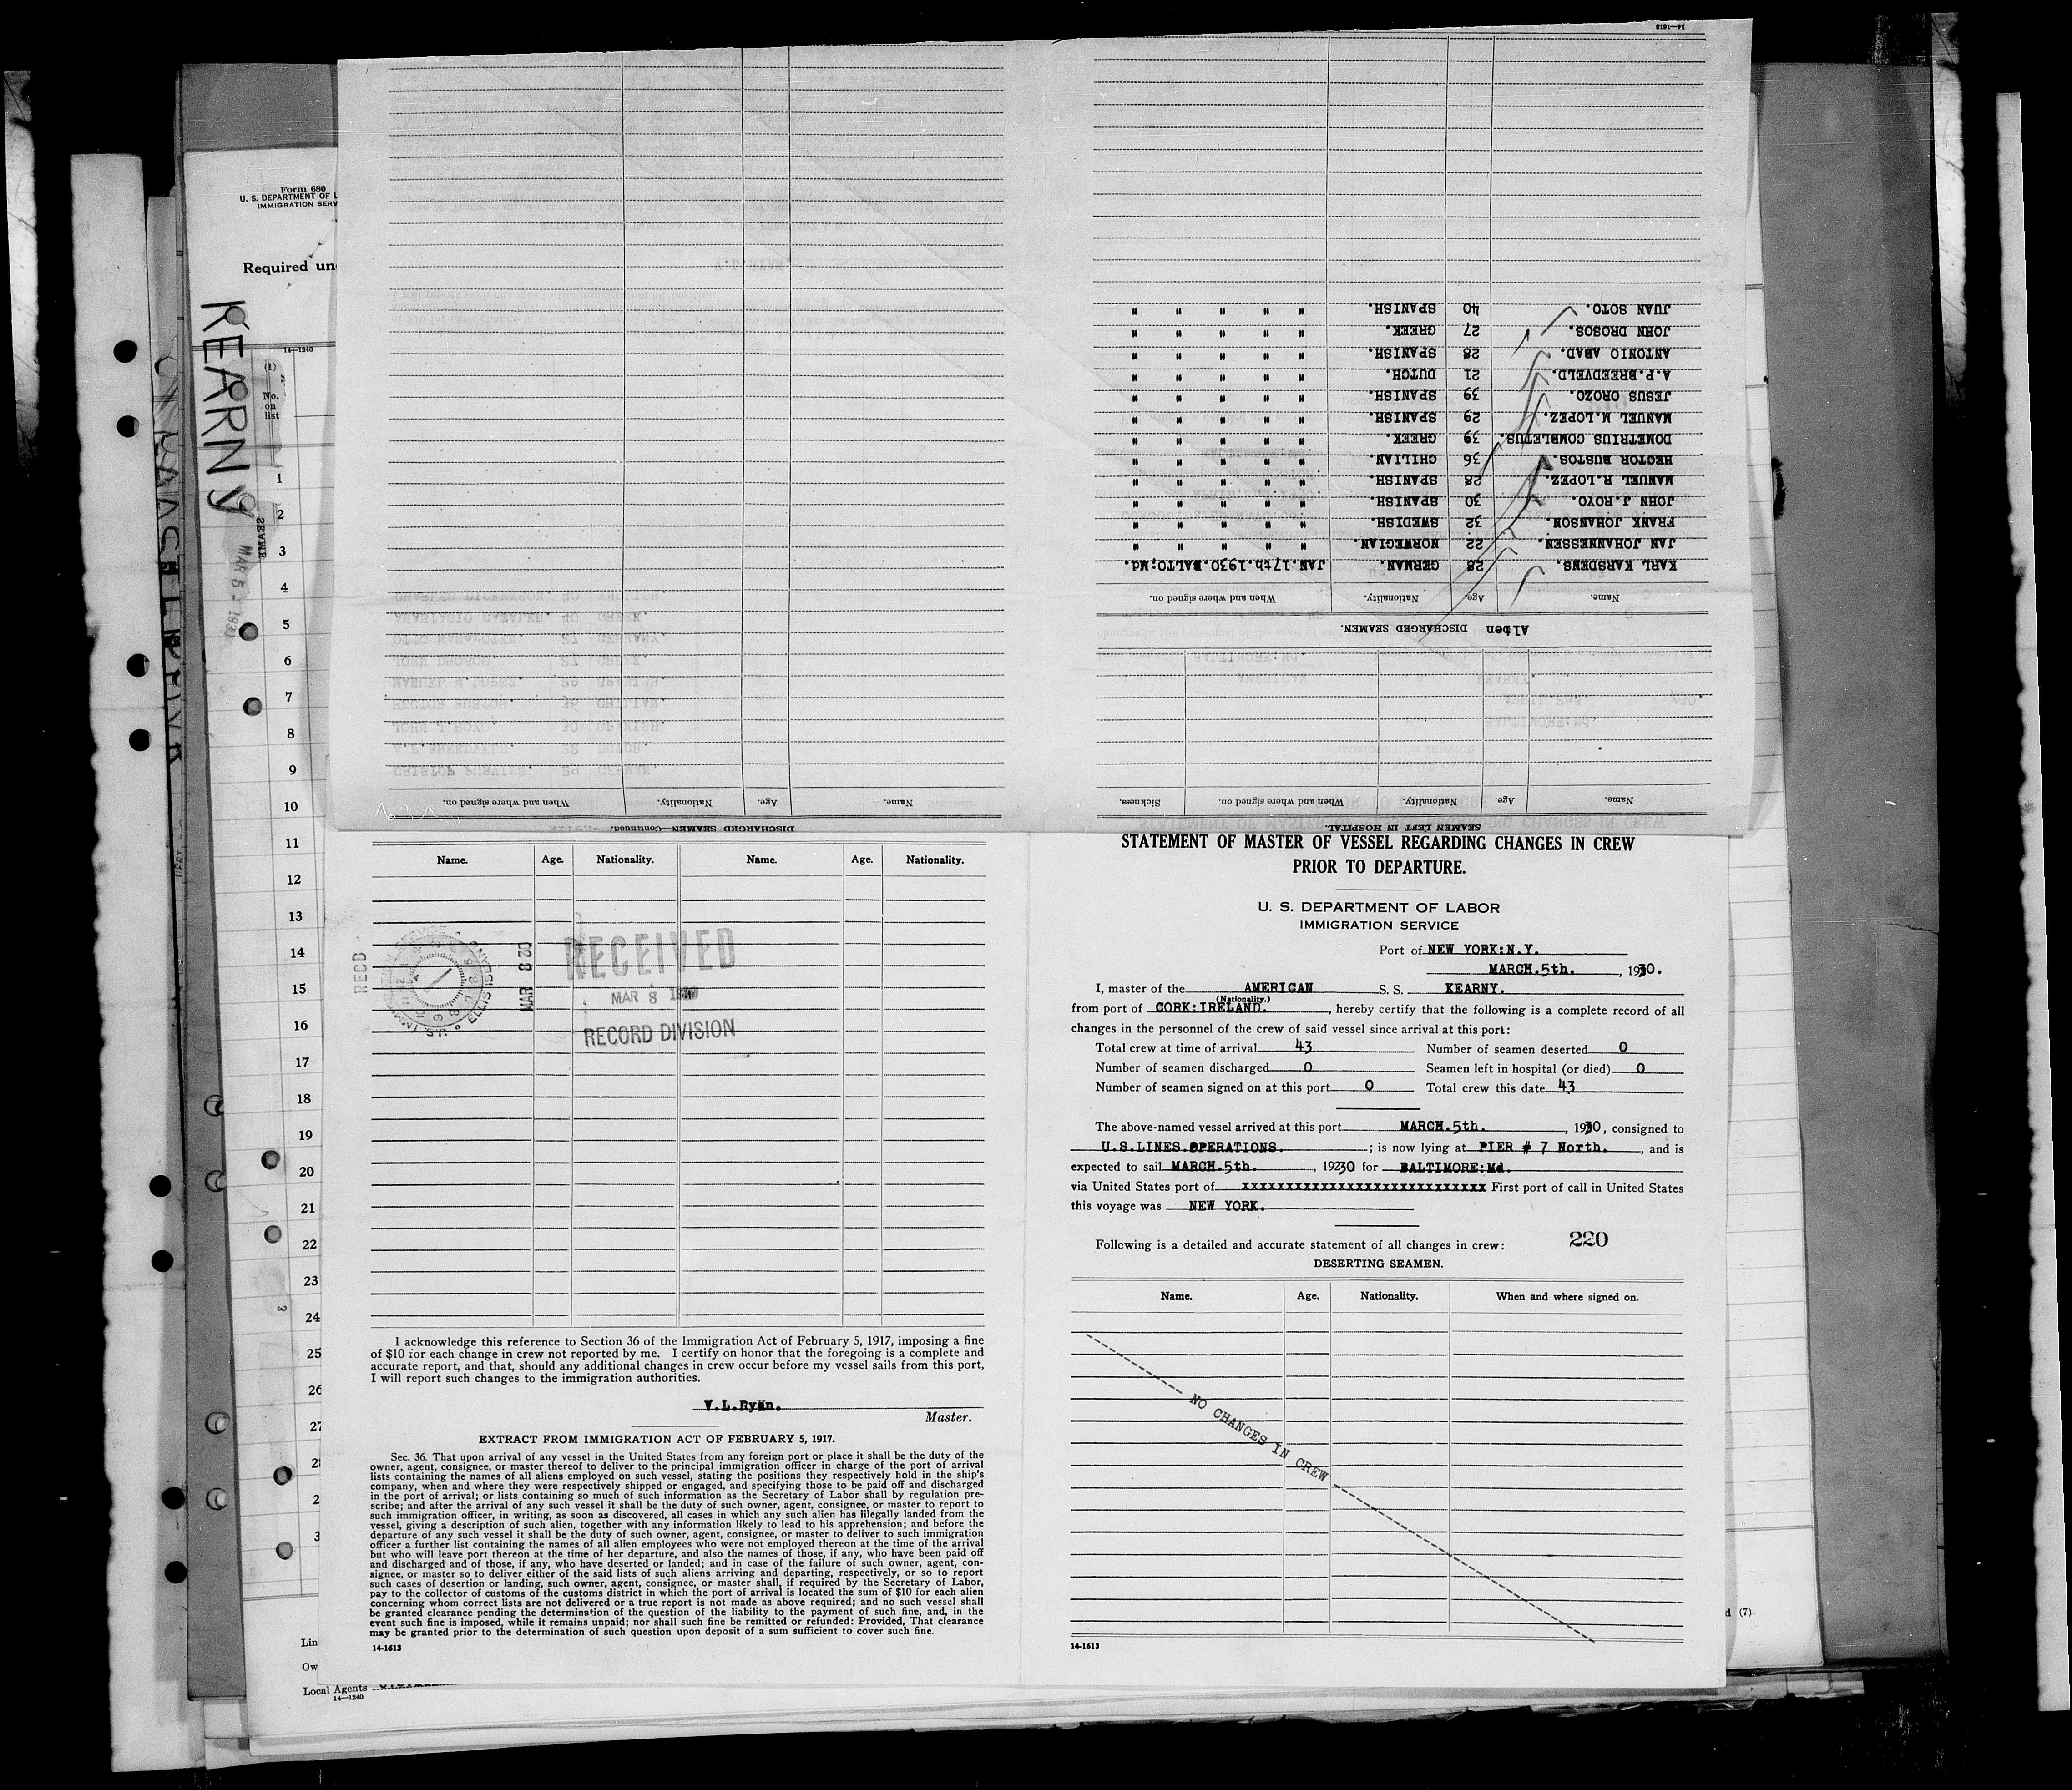 Form 680
U. S. DEPARTMENT OF L
IMMIGRATION SERV
Required un
KEARNY
SEAME
MAR 5 - 193
14—1240
(1)
No.
on
list
1
2
3
4
5
6
7
8
9
10
11
12
13
14
15
16
17
18
19
20
21
22
23
24
25
26
27
2
3
Lin
Ow
Local Agents
14—1240
d (7)
3
SEAMEN LEFT IN HOSPITAL.
Name. Age. Nationality. When and where signed on. Sickness.
Alben DISCHARGED SEAMEN.
Name. Age. Nationality. When and where signed on.
KARL KARSDENS. 28 GERMAN. JAN.17th.1930.BALTO;Md.
JAN JOHANNESSEN. 22 NORWEGIAN. " " " " "
FRANK JOHANSON. 32 SWEDISH. " " " " "
JOHN J.ROYO. 30 SPANISH. " " " " "
MANUEL R.LOPEZ. 28 SPANISH. " " " " "
HECTOR BUSTOS. 36 CHILIAN. " " " " "
DOMETRIUS COMBLETUS. 39 GREEK. " " " " "
MANUEL M.LOPEZ. 29 SPANISH. " " " " "
JESUS OROZO. 39 SPANISH. " " " " "
A.P.BREEDVELD. 21 DUTCH. " " " " "
ANTONIO ABAD. 28 SPANISH. " " " " "
JOHN DROSOS. 27 GREEK. " " " " "
JUAN SOTO. 40 SPANISH. " " " " "
14—1613
DISCHARGED SEAMEN—Continued.
Name. Age. Nationality. When and where signed on.
Name. Age. Nationality. Name. Age. Nationality.
RECD
MAR 8 20
ELLIS ISLAND
RECEIVED
MAR 8 1930
RECORD DIVISION
I acknowledge this reference to Section 36 of the Immigration Act of February 5, 1917, imposing a fine
of $10 for each change in crew not reported by me. I certify on honor that the foregoing is a complete and
accurate report, and that, should any additional changes in crew occur before my vessel sails from this port,
I will report such changes to the immigration authorities.
V.L.Ryan.
Master.
EXTRACT FROM IMMIGRATION ACT OF FEBRUARY 5, 1917.
Sec. 36. That upon arrival of any vessel in the United States from any foreign port or place it shall be the duty of the
owner, agent, consignee, or master thereof to deliver to the principal immigration officer in charge of the port of arrival
lists containing the names of all aliens employed on such vessel, stating the positions they respectively hold in the ship's
company, when and where they were respectively shipped or engaged, and specifying those to be paid off and discharged
in the port of arrival; or lists containing so much of such information as the Secretary of Labor shall by regulation pre-
scribe; and after the arrival of any such vessel it shall be the duty of such owner, agent, consignee, or master to report to
such immigration officer, in writing, as soon as discovered, all cases in which any such alien has illegally landed from the
vessel, giving a description of such alien, together with any information likely to lead to his apprehension; and before the
departure of any such vessel it shall be the duty of such owner, agent, consignee, or master to deliver to such immigration
officer a further list containing the names of all alien employees who were not employed thereon at the time of the arrival
but who will leave port thereon at the time of her departure, and also the names of those, if any, who have been paid off
and discharged and of those, if any, who have deserted or landed; and in case of the failure of such owner, agent, con-
signee, or master so to deliver either of the said lists of such aliens arriving and departing, respectively, or so to report
such cases of desertion or landing, such owner, agent, consignee, or master shall, if required by the Secretary of Labor,
pay to the collector of customs of the customs district in which the port of arrival is located the sum of $10 for each alien
concerning whom correct lists are not delivered or a true report is not made as above required; and no such vessel shall
be granted clearance pending the determination of the question of the liability to the payment of such fine, and, in the
event such fine is imposed, while it remains unpaid; nor shall such fine be remitted or refunded: Provided, That clearance
may be granted prior to the determination of such question upon deposit of a sum sufficient to cover such fine.
14-1613
STATEMENT OF MASTER OF VESSEL REGARDING CHANGES IN CREW
PRIOR TO DEPARTURE.
U. S. DEPARTMENT OF LABOR
IMMIGRATION SERVICE
Port of NEW YORK:N.Y.
MARCH.5th. , 1930.
I, master of the AMERICAN S. S. KEARNY.
(Nationality.)
from port of CORK:IRELAND. , hereby certify that the following is a complete record of all
changes in the personnel of the crew of said vessel since arrival at this port:
Total crew at time of arrival 43 Number of seamen deserted 0
Number of seamen discharged 0 Seamen left in hospital (or died) 0
Number of seamen signed on at this port 0 Total crew this date 43
The above-named vessel arrived at this port MARCH.5th. , 1930, consigned to
U.S.LINES.OPERATIONS. ; is now lying at PIER # 7 North. , and is
expected to sail MARCH.5th. , 19230 for BALTIMORE:Md.
via United States port of xxxxxxxxxxxxxxxxxxxxxxxxxxxx First port of call in United States
this voyage was NEW YORK.
220
Following is a detailed and accurate statement of all changes in crew:
DESERTING SEAMEN.
Name. Age. Nationality. When and where signed on.
NO CHANGES IN CREW
14-1613